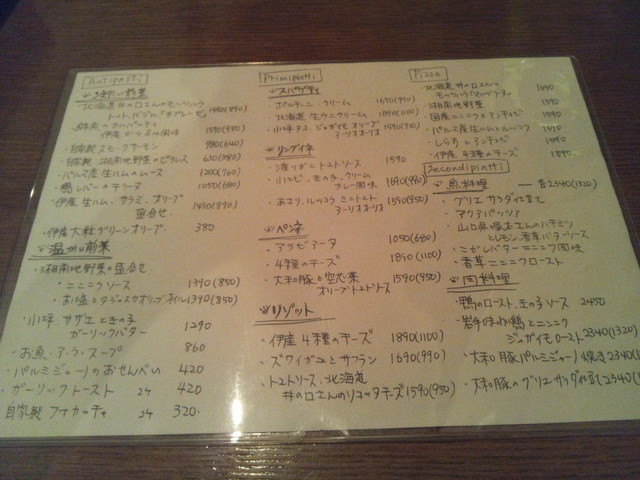 Antipasti
冷たい前菜
北海道 井の口さんのモッツァレラ
トマト、バジル「カプレーゼ」 1490(890)
カルパッチョ
1590(950)
自家製 スモークサーモン 980(640)
自家製 湘南地野菜のピクルス 630(380)
パルマ産生ハムのムース 1200(760)
鴨レバーのテリーヌ 1050(680)
伊産 生ハム、サラミ、オリーブ
盛合せ 1490(890)
伊産大粒グリーンオリーブ 380
温かい前菜
湘南地野菜の盛合せ
・ニンニクソース 1390(850)
・お塩とタジャスカオリーブオイル 1390(850)
・小坪 サザエときの子
ガーリックバター 1290
・お魚・アラ・スープ 860
・パルミジャーノのおせんべい 420
・ガーリックトースト 2ヶ 420
自家製 フォカッチャ 2ヶ 320.
Primipiatti
スパゲティ
・ポルチーニ・クリーム 1690(990)
・北海道 生ウニクリーム 1890(1100)
・小坪タコ ジャガイモ オリーブ
アーリオオーリオ 1590(950)
リングイネ
・渡りガニトマトソース 1590
・小エビ、きの子、クリーム
カレー風味 1690(990)
・ルッコラ ミニトマト
アーリオオーリオ 1590(950)
ペンネ
・アラビアータ 1050(680)
・4種のチーズ 1890(1100)
・大和豚と空芯菜
オリーブトマトソース 1590(950)
リゾット
・伊産 4種のチーズ 1890(1100)
・ズワイガニとサフラン 1690(990)
・トマトソース、北海道
井の口さんのリコッタチーズ 1590(950)
Pizza
・北海道 井の口さんの
モッツァレラ「マルゲリータ」 1690
・湘南地野菜 1590
・国産ニンニクとアンチョビ 1590
・パルマ産生ハムとルッコラ
・しらすとアンチョビ
・伊産 4種のチーズ 1890
Secondipiatti
魚料理 — 各2340(1320)
・グリエ サラダ仕立て
・アクアパッツァ
・山口県 さんのハチミツ
とレモン、香草バターソース
・こがしバターニンニク風味
・香草ニンニクロースト
肉料理
・鴨のロースト、きの子ソース 2450
・岩手 鶏とニンニク
ジャガイモロースト 2340(1320)
・大和豚パルミジャーノ焼き 2340(1
・大和豚のグリエサラダ仕立て 2340(1